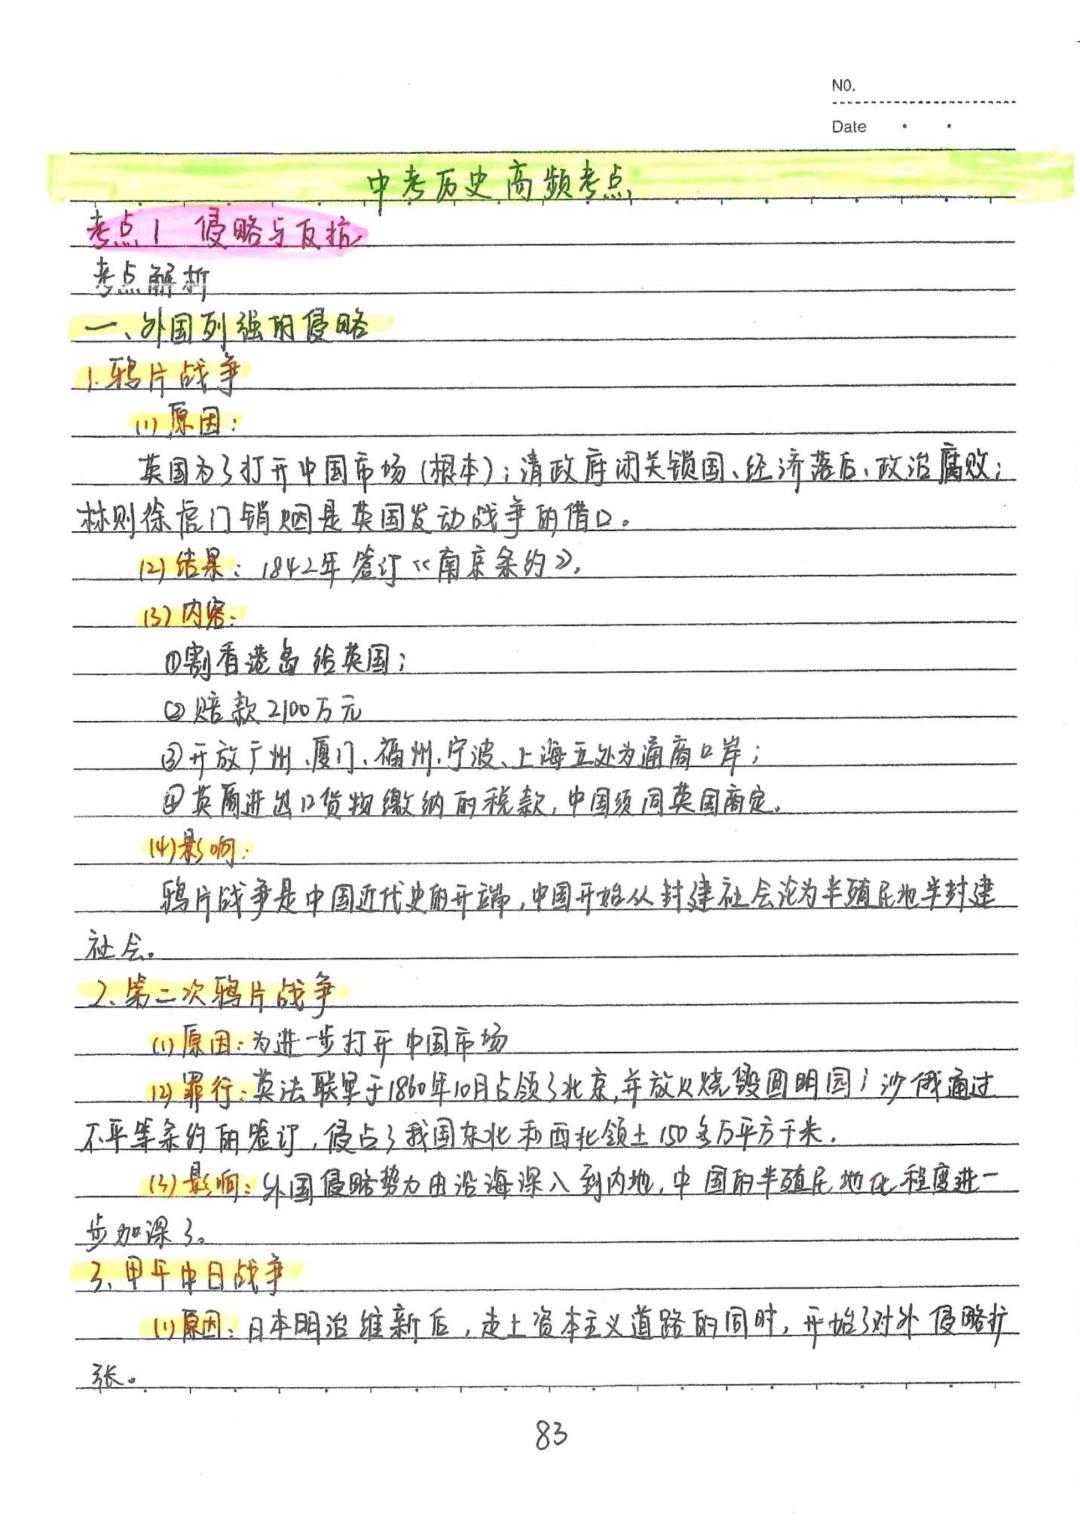 NO.
Date
中考历史高频考点
考点1 侵略与反抗
考点解析
一、外国列强的侵略
1.鸦片战争
(1)原因:
英国为了打开中国市场(根本);清政府闭关锁国、经济落后、政治腐败;
林则徐虎门销烟是英国发动战争的借口。
(2)结果:1842年签订《南京条约》。
(3)内容:
①割香港岛给英国;
②赔款2100万元
③开放广州、厦门、福州、宁波、上海五处为通商口岸;
④英商进出口货物缴纳的税款,中国须同英国商定。
(4)影响:
鸦片战争是中国近代史的开端,中国开始从封建社会沦为半殖民地半封建
社会。
2、第二次鸦片战争
(1)原因:为进一步打开中国市场
(2)罪行:英法联军于1860年10月占领了北京,并放火烧毁圆明园;沙俄通过
不平等条约的签订,侵占了我国东北和西北领土150多万平方千米。
(3)影响:外国侵略势力由沿海深入到内地,中国的半殖民地化程度进一
步加深了。
3、甲午中日战争
(1)原因:日本明治维新后,走上资本主义道路的同时,开始了对外侵略扩
张。
83